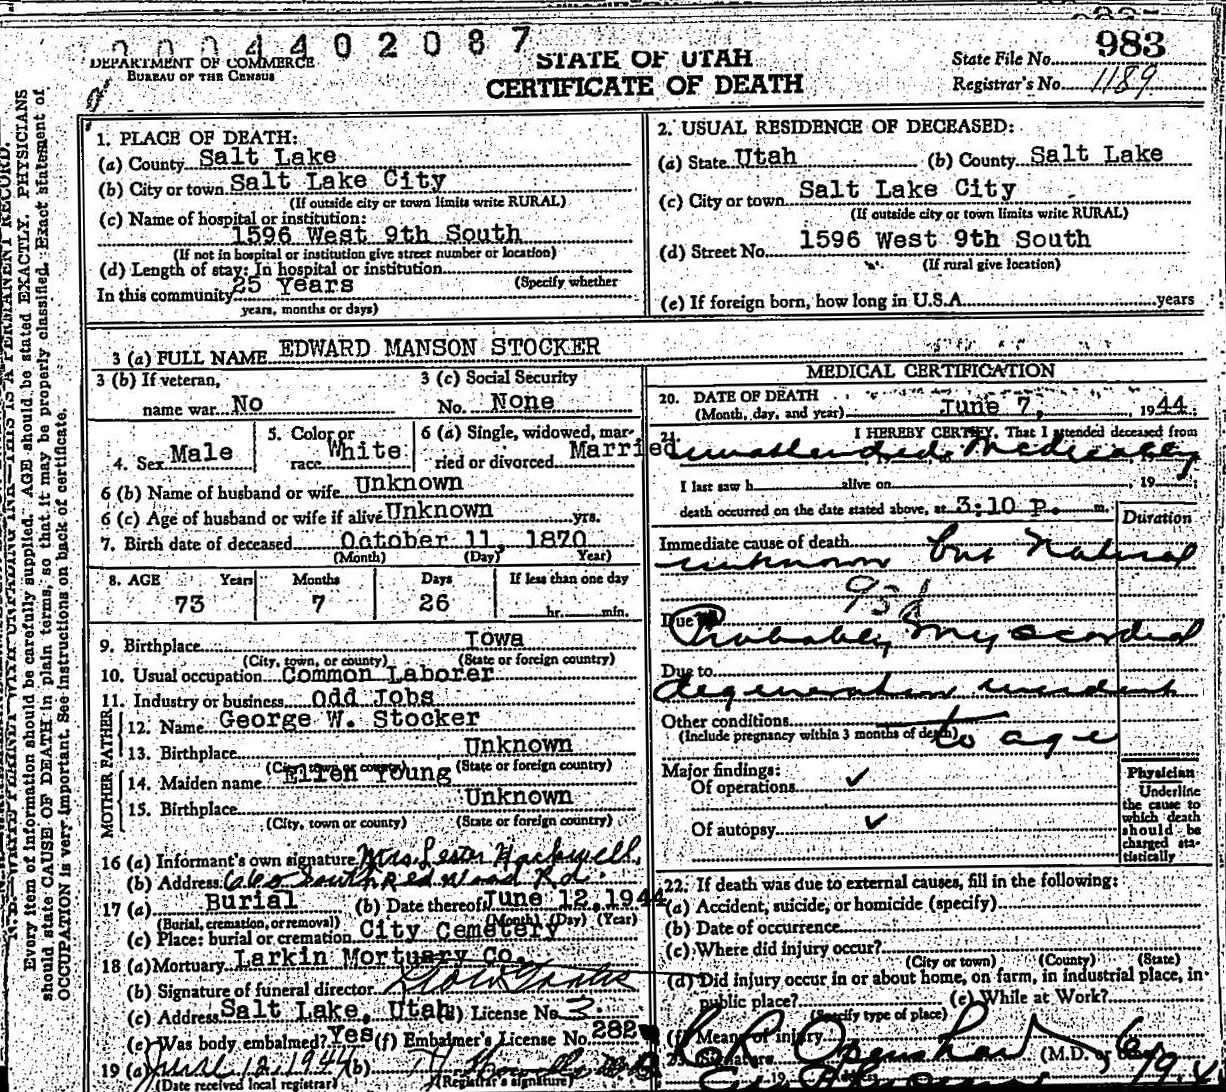 0 0 0 4 4 0 2 0 8 7
DEPARTMENT OF COMMERCE
BUREAU OF THE CENSUS
STATE OF UTAH
CERTIFICATE OF DEATH
State File No. 983
Registrar's No. 1189
1. PLACE OF DEATH:
(a) County Salt Lake
(b) City or town Salt Lake City
(If outside city or town limits write RURAL)
(c) Name of hospital or institution:
1596 West 9th South
(If not in hospital or institution give street number or location)
(d) Length of stay: In hospital or institution
(Specify whether
In this community 25 Years
years, months or days)
2. USUAL RESIDENCE OF DECEASED:
(a) State Utah (b) County Salt Lake
(c) City or town Salt Lake City
(If outside city or town limits write RURAL)
(d) Street No. 1596 West 9th South
(If rural give location)
(e) If foreign born, how long in U.S.A. years
3 (a) FULL NAME EDWARD MANSON STOCKER
3 (b) If veteran,
name war No
3 (c) Social Security
No. None
4. Sex Male
5. Color or
race White
6 (a) Single, widowed, mar-
ried or divorced Married
6 (b) Name of husband or wife Unknown
6 (c) Age of husband or wife if alive Unknown yrs.
7. Birth date of deceased October 11, 1870
(Month) (Day) Year)
8. AGE Years Months Days If less than one day
73 7 26 hr. min.
9. Birthplace Iowa
(City, town, or county) (State or foreign country)
10. Usual occupation Common Laborer
11. Industry or business Odd Jobs
FATHER
12. Name George W. Stocker
13. Birthplace Unknown
(City, town or county) (State or foreign country)
MOTHER
14. Maiden name Ellen Young
15. Birthplace Unknown
(City, town or county) (State or foreign country)
16 (a) Informant's own signature Mrs. Lester Hackwell
(b) Address 660 South Red Wood Rd.
17 (a) Burial (b) Date thereof June 12, 1944
(Burial, cremation, or removal) (Month) (Day) (Year)
(c) Place: burial or cremation City Cemetery
18 (a) Mortuary Larkin Mortuary Co.
(b) Signature of funeral director
(c) Address Salt Lake, Utah (d) License No 3
(e) Was body embalmed? Yes (f) Embalmer's License No. 282
19 (a) 12, 1944 (b)
(Date received local registrar) (Registrar's signature)
MEDICAL CERTIFICATION
20. DATE OF DEATH
(Month, day, and year) June 7, 1944
21. I HEREBY CERTIFY, That I attended deceased from
unattended Medically
I last saw h alive on , 19
death occurred on the date stated above, at 3:10 p. m.
Duration
Immediate cause of death but Natural
unknown
93d
Due to
Probably Myocardial
Due to
degeneration incident
Other conditions
(Include pregnancy within 3 months of death) to age
Major findings:
Of operations ✓
Of autopsy ✓
Physician
Underline
the cause to
which death
should be
charged sta-
tistically
22. If death was due to external causes, fill in the following:
(a) Accident, suicide, or homicide (specify)
(b) Date of occurrence
(c) Where did injury occur?
(City or town) (County) (State)
(d) Did injury occur in or about home, on farm, in industrial place, in
public place? (e) While at Work?
(Specify type of place)
(f) Means of injury
23. Signature Openshaw (M.D. or
Every item of information should be carefully supplied. AGE should be stated EXACTLY. PHYSICIANS
should state CAUSE OF DEATH in plain terms, so that it may be properly classified. Exact statement of
OCCUPATION is very important. See instructions on back of certificate.